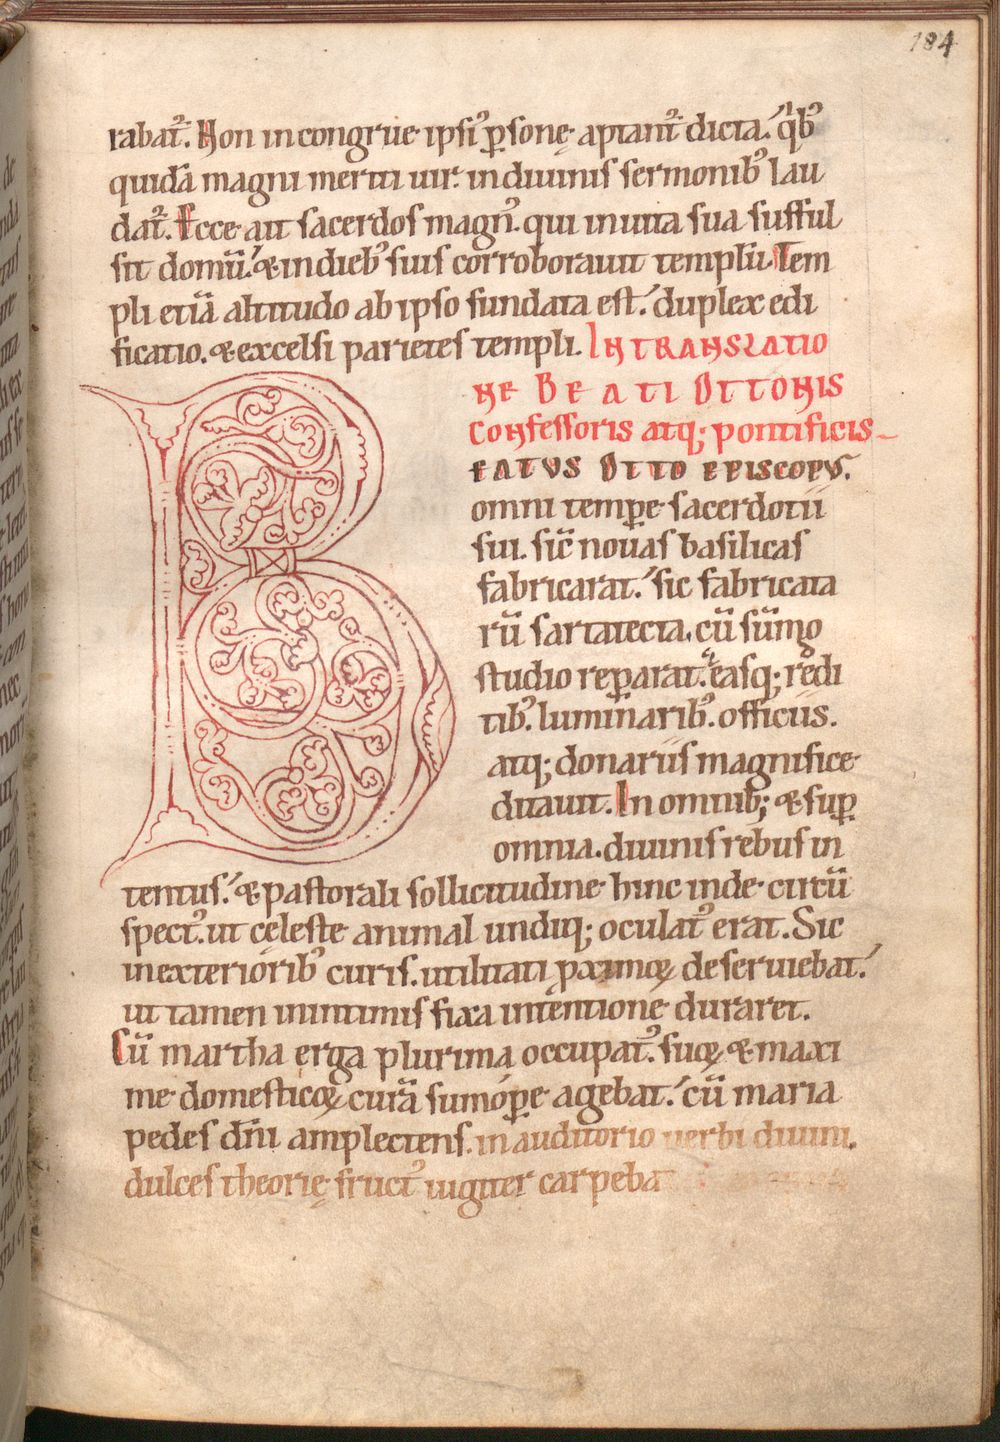 184
rabat᷒. Non incongrue ipsiꝰ ꝑsonę aptant᷒ dicta. qͥbꝰ
quidā magni meriti uir. in diuinis sermonibꝰ lau
dat᷒. Ecce ait sacerdos magnꝰ. qui in uita sua sufful
sit domū. & in diebꝰ suis corroborauit templū. Tem
pli etiā altitudo ab ipso fundata est. duplex edi
ficatio. & excelsi parietes templi. IN TRANSLATIO
NE BEATI OTTONIS
Confessoris atq; pontificis
BEATVS OTTO EPISCOPVS.
omni tempore sacerdotii
sui. sic̄ nouas basilicas
fabricarat. sic fabricata
rū sartatecta. cū sūmo
studio reꝑarat. easq; redi
tibꝰ. luminaribꝰ. officiis.
atq; donariis magnifice
ditauit. In omnib; & suꝑ
omnia. diuinis rebus in
tentus. & pastorali sollicitudine hinc inde circū
spectꝰ. ut celeste animal undiq; oculatꝰ erat. Sic
in exterioribꝰ curis. utilitati ꝓximoꝝ deseruiebat.
ut tamen in intimis fixa intentione duraret.
Cū martha erga plurima occupatꝰ. suoꝝ & maxi
me domesticoꝝ curā sumoꝑe agebat. cū maria
pedes dn̄i amplectens. in auditorio uerbi diuini.
dulces theorię fructꝰ iugiter carpeba